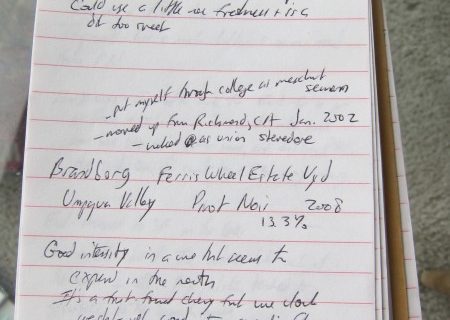 Could use a little more freshness + is a
bit too sweet
- put myself through college as merchant
seaman
- moved up from Richmond, CA Jan. 2002
- worked as union stevedore
Brandborg Ferris Wheel Estate Vyd
Umpqua Valley Pinot Noir 2008
13.3%
Good intensity in a wine that seems to
expand in the mouth
It's a fruit forward cherry